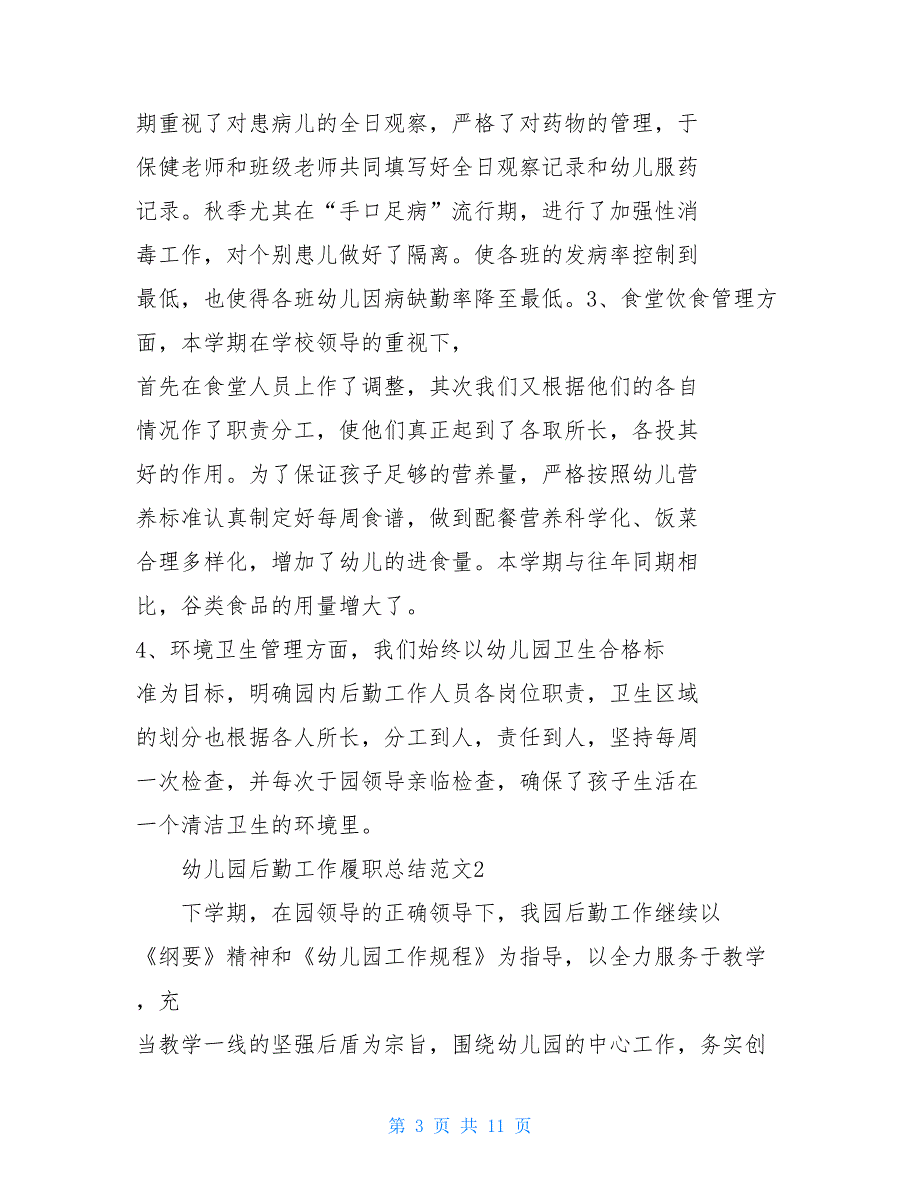 期重视了对患病儿的全日观察，严格了对药物的管理，于
保健老师和班级老师共同填写好全日观察记录和幼儿服药
记录。秋季尤其在“手口足病”流行期，进行了加强性消
毒工作，对个别患儿做好了隔离。使各班的发病率控制到
最低，也使得各班幼儿因病缺勤率降至最低。3、食堂饮食管理方
面，本学期在学校领导的重视下，
首先在食堂人员上作了调整，其次我们又根据他们的各自
情况作了职责分工，使他们真正起到了各取所长，各投其
好的作用。为了保证孩子足够的营养量，严格按照幼儿营
养标准认真制定好每周食谱，做到配餐营养科学化、饭菜
合理多样化，增加了幼儿的进食量。本学期与往年同期相
比，谷类食品的用量增大了。
4、环境卫生管理方面，我们始终以幼儿园卫生合格标
准为目标，明确园内后勤工作人员各岗位职责，卫生区域
的划分也根据各人所长，分工到人，责任到人，坚持每周
一次检查，并每次于园领导亲临检查，确保了孩子生活在
一个清洁卫生的环境里。
幼儿园后勤工作履职总结范文2
下学期，在园领导的正确领导下，我园后勤工作继续以
《纲要》精神和《幼儿园工作规程》为指导，以全力服务于教学
，充
当教学一线的坚强后盾为宗旨，围绕幼儿园的中心工作，务实创
第 3 页 共 11 页